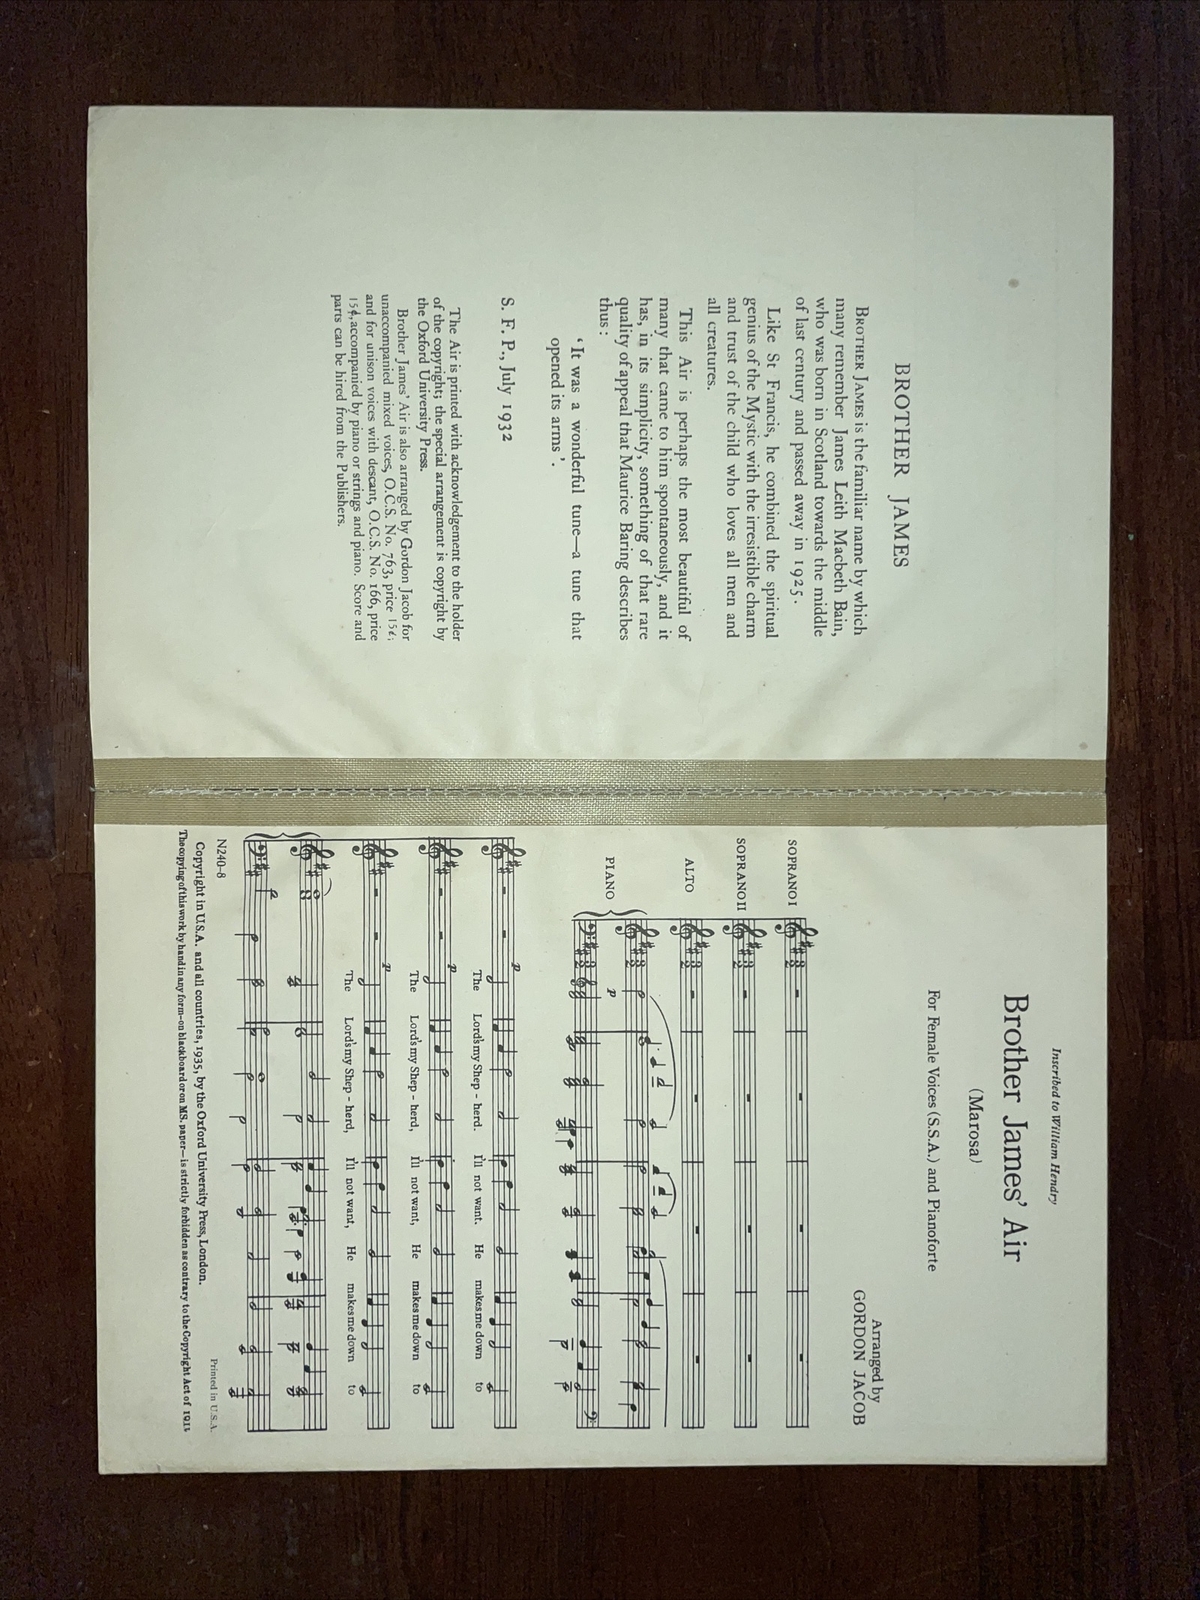 BROTHER JAMES
BROTHER JAMES is the familiar name by which
many remember James Leith Macbeth Bain,
who was born in Scotland towards the middle
of last century and passed away in 1925.
Like St Francis, he combined the spiritual
genius of the Mystic with the irresistible charm
and trust of the child who loves all men and
all creatures.
This Air is perhaps the most beautiful of
many that came to him spontaneously, and it
has, in its simplicity, something of that rare
quality of appeal that Maurice Baring describes
thus:
‘It was a wonderful tune—a tune that
opened its arms’.
S. F. P., July 1932
The Air is printed with acknowledgement to the holder
of the copyright; the special arrangement is copyright by
the Oxford University Press.
Brother James’ Air is also arranged by Gordon Jacob for
unaccompanied mixed voices, O.C.S. No. 763, price 15¢;
and for unison voices with descant, O.C.S. No. 166, price
15¢, accompanied by piano or strings and piano. Score and
parts can be hired from the Publishers.
Inscribed to William Hendry
Brother James’ Air
(Marosa)
For Female Voices (S.S.A.) and Pianoforte
Arranged by
GORDON JACOB
SOPRANO I
SOPRANO II
ALTO
PIANO
p
p
The Lord's my Shep - herd. I'll not want. He makes me down to
p
The Lord's my Shep - herd, I'll not want, He makes me down to
p
The Lord's my Shep - herd, I'll not want, He makes me down to
N240-8
Printed in U.S.A.
Copyright in U.S.A. and all countries, 1935, by the Oxford University Press, London.
The copying of this work by hand in any form—on blackboard or on MS. paper—is strictly forbidden as contrary to the Copyright Act of 1911